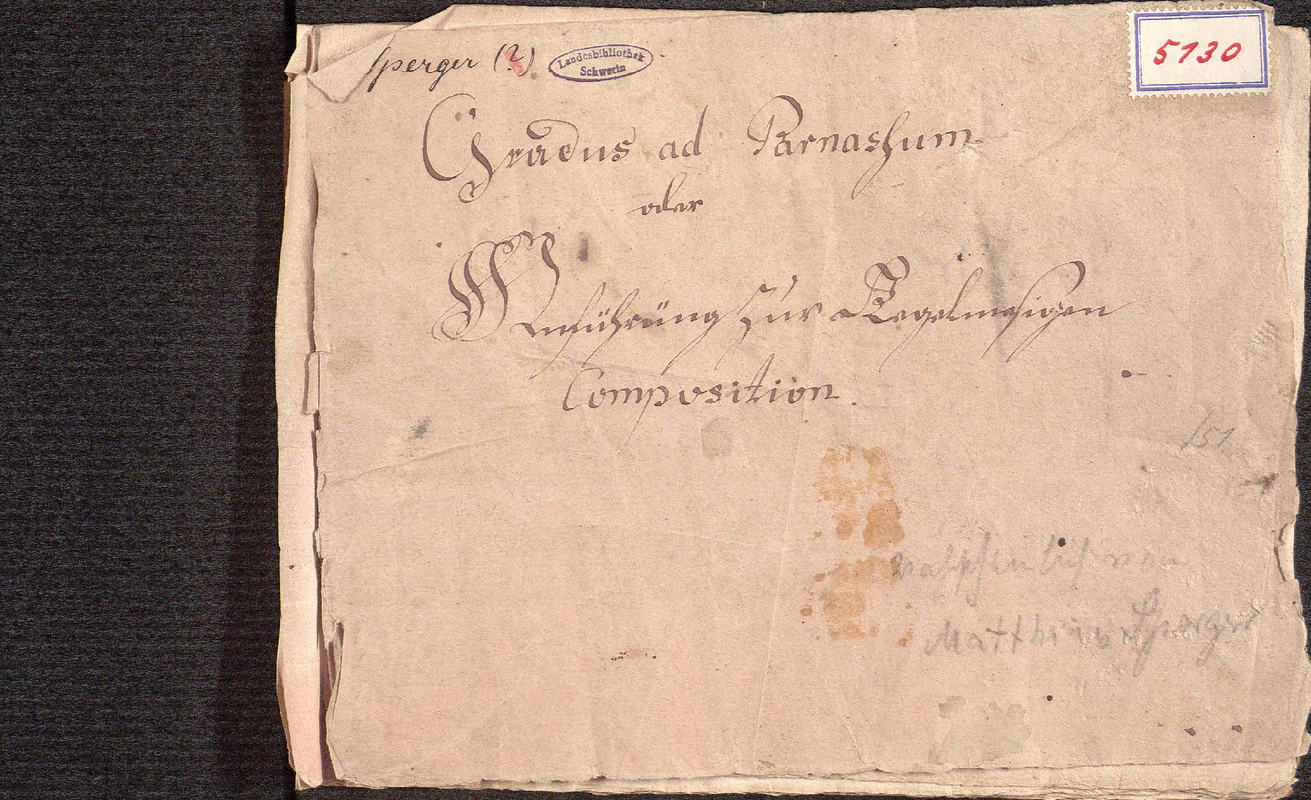 Sperger (2)
Landesbibliothek
Schwerin
5130
Gradus ad Parnassum
oder
Anführung zur Regelmesigen
Composition.
151
von
Matthias Sperger